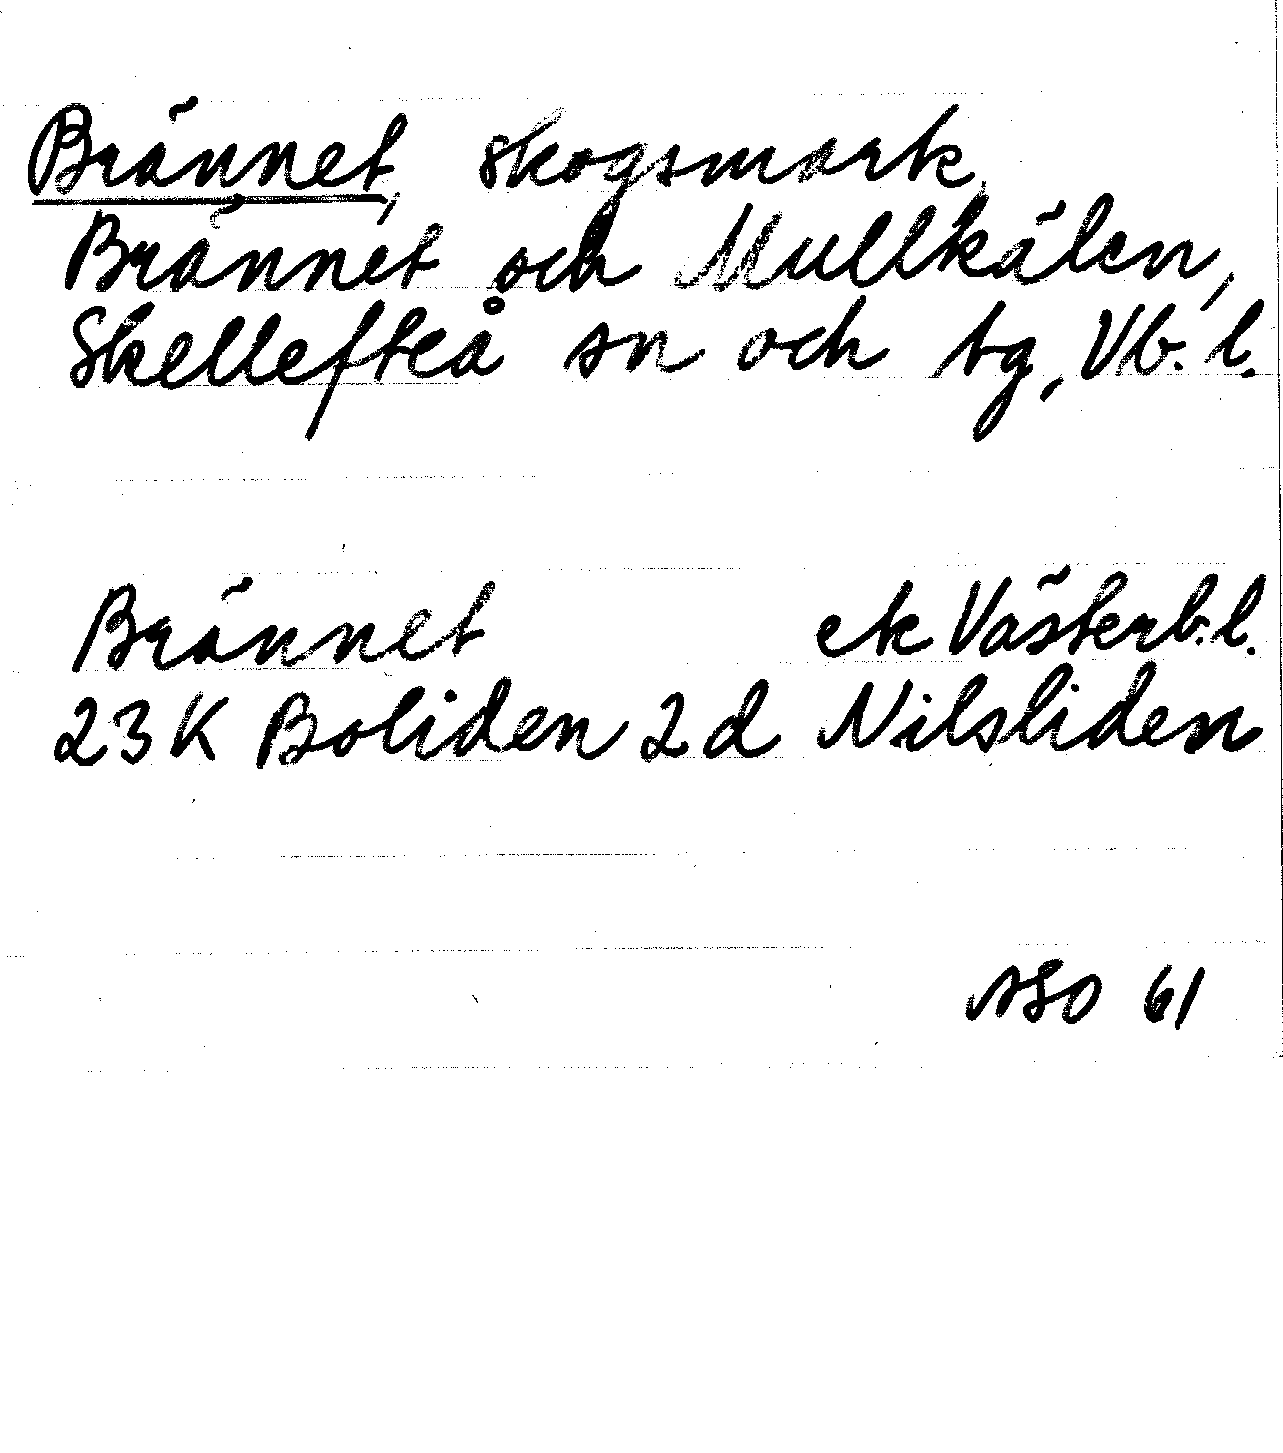 Brännet, skogsmark,
Brännet och Mullkälen,
Skellefteå sn och tg, Vb. l.
Brännet ek Västerb.l.
23K Boliden 2d Nilsliden
ASO 61